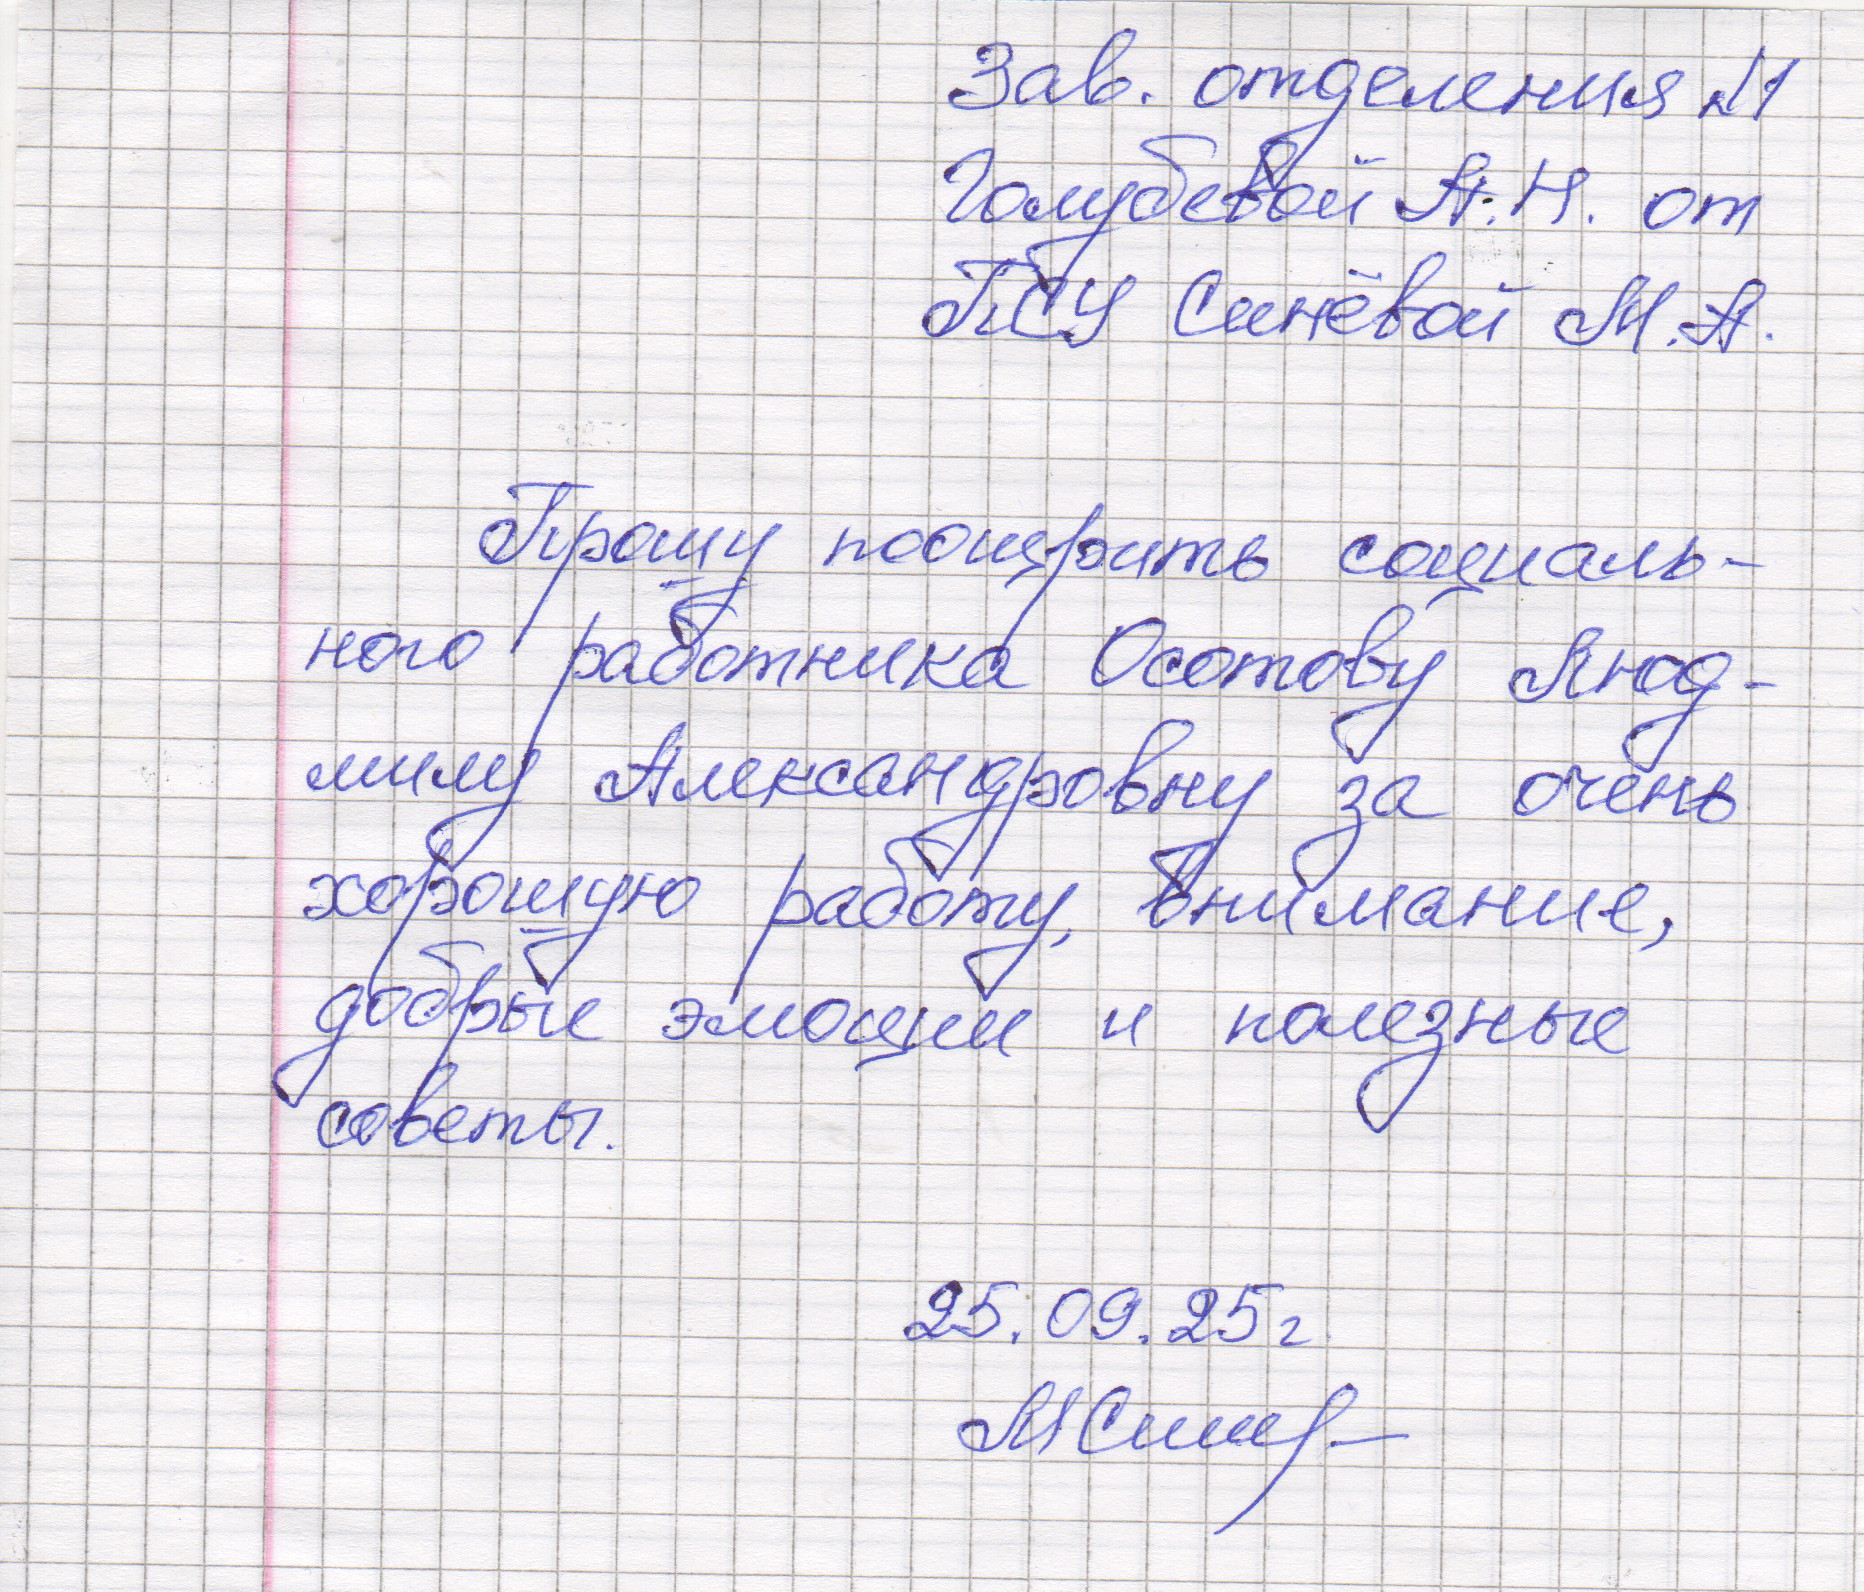 Зав. отделения №1
Голубевой А.Н. от
ПСУ Синёвой М.А.
Прошу поощрить социаль-
ного работника Осотову Люд-
милу Александровну за очень
хорошую работу, внимание,
добрые эмоции и полезные
советы.
25.09.25г.